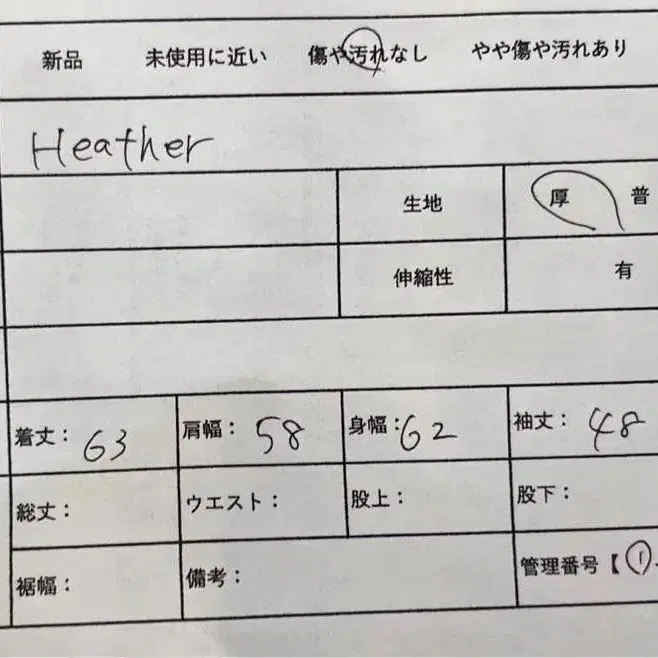 新品 未使用に近い 傷や汚れなし やや傷や汚れあり
Heather
生地 厚 普
伸縮性 有
着丈： 63 肩幅： 58 身幅： 62 袖丈： 48
総丈： ウエスト： 股上： 股下：
裾幅： 備考： 管理番号【 ①